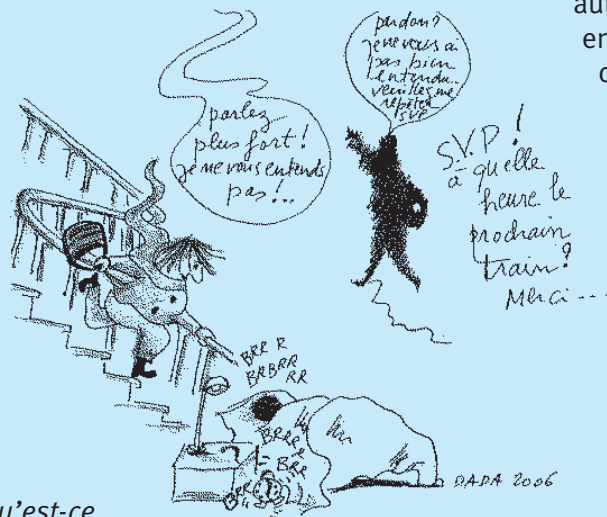 parlez
plus fort!
je ne vous entends
pas!...
pardon?
je ne vous ai
pas bien
entendu..
veuillez me
répéter
SVP
S.V.P!
à quelle
heure le
prochain
train?
Merci...
BRR R
BRBRR
RR
BRRR
BRR
RR
DADA 2006
aut
en
u'est-ce